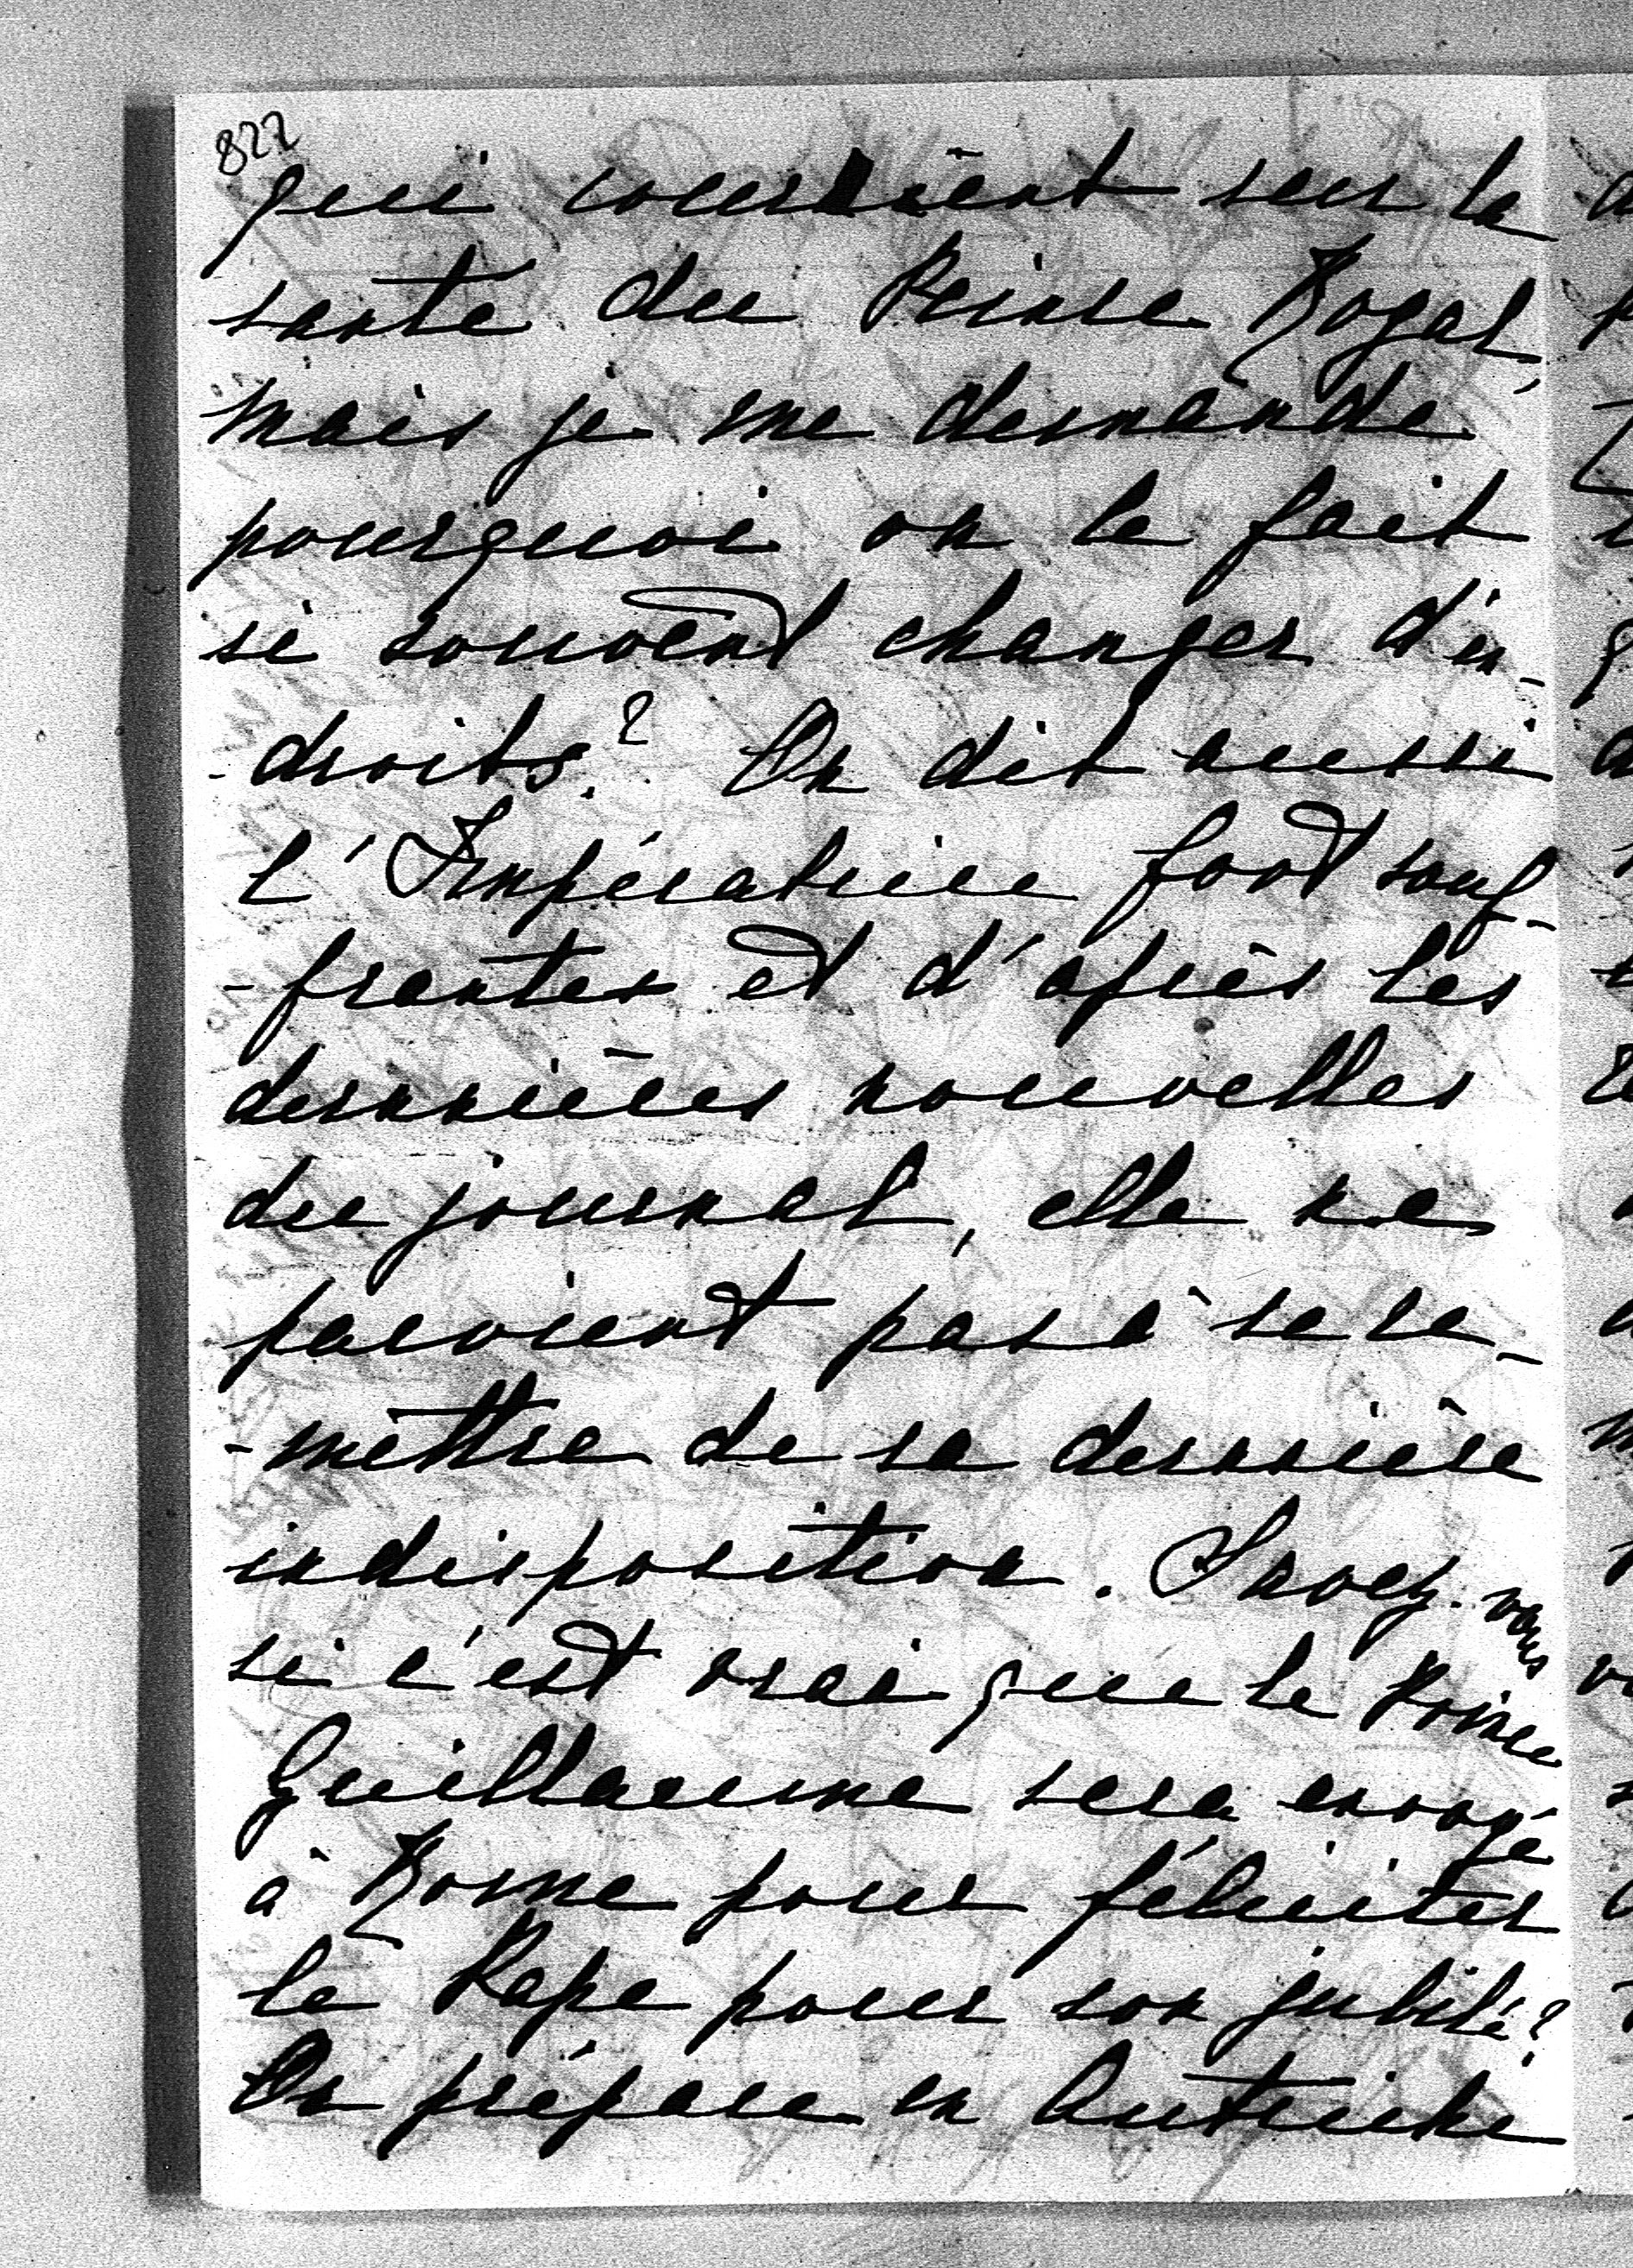 822
qui couraient sur la
sante du Prince Royal,
mais je me demande
pourquoi on le fait
si souvent changer d'en-
-droits? On dit aussi
l'Impératrice fort souf-
-frantes et d'après les
dernières nouvelles
du journal, elle ne
parvient pas à se re-
-mettre de sa dernière
indisposition. Savez-vous
si c'est vrai que le Prince
Guillaume sera envoyé
à Rome pour féliciter
le Pape pour son jubilé?
On prépare en Autriche